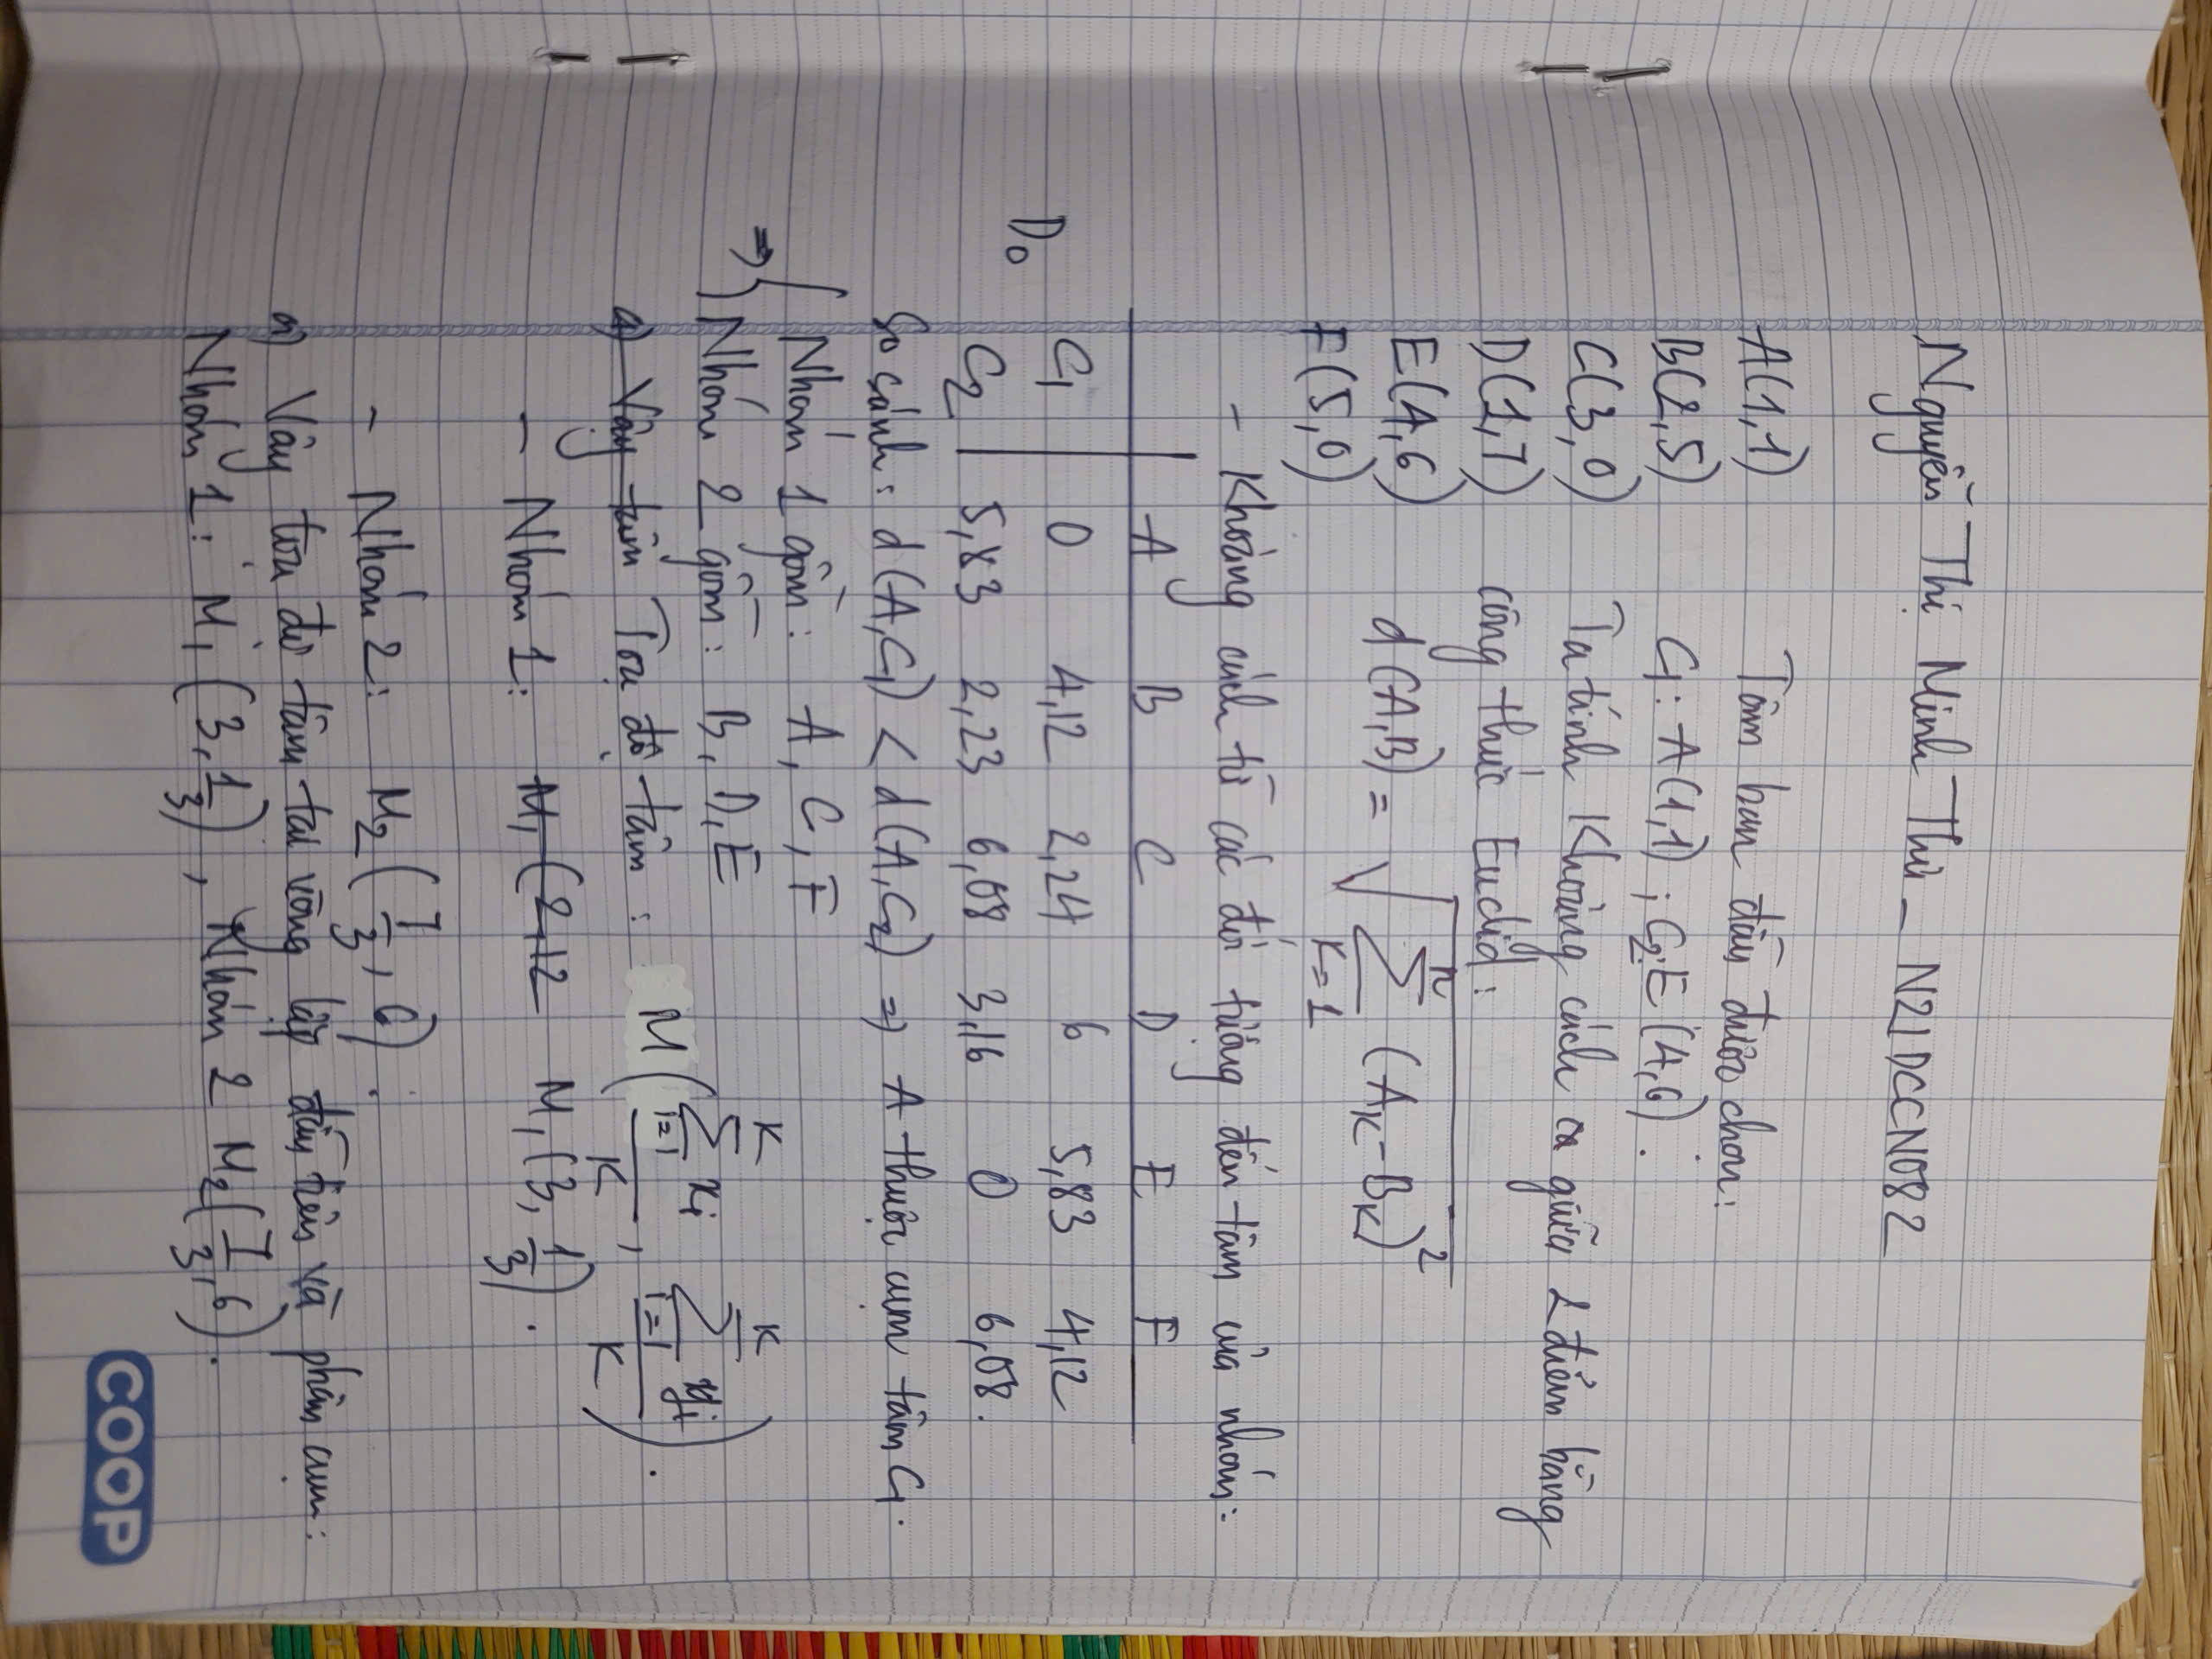 Nguyễn Thị Minh Thư - N21DCCN082
A(1,1) Tâm ban đầu được chọn:
B(2,5) C1: A(1,1) ; C2: E(4,6).
C(3,0) Ta tính khoảng cách giữa 2 điểm bằng
D(1,7) công thức Euclid:
E(4,6) d(A,B) = √(∑_{K=1}^{n} (A_K - B_K)²)
F(5,0)
- Khoảng cách từ các đối tượng đến tâm của nhóm:
A B C D E F
C1 0 4,12 2,24 6 5,83 4,12
D0
C2 5,83 2,23 6,08 3,16 0 6,08.
So sánh: d(A,C1) < d(A,C2) => A thuộc cụm tâm C1.
=> { Nhóm 1 gồm: A, C, F
Nhóm 2 gồm: B, D, E
a) Vậy tâm Toạ độ tâm: M(∑_{i=1}^{K} x_i / K, ∑_{i=1}^{K} y_i / K).
- Nhóm 1: M1(2,12 M1(3, 1/3).
- Nhóm 2: M2(7/3, 6).
a) Vậy toạ độ tâm tại vòng lặp đầu tiên và phân cụm:
Nhóm 1: M1(3, 1/3), Nhóm 2 M2(7/3, 6).
COOP